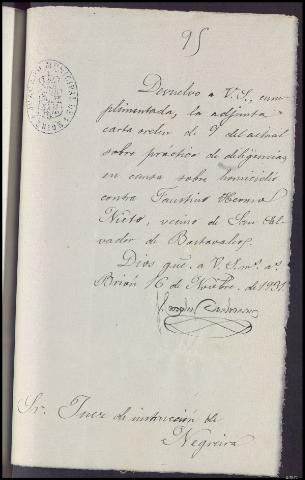 95
Devuelvo a V.S., cum-
plimentada, la adjunta
carta orden de 9 del actual
sobre práctica de diligencias
en causa sobre homicidio
contra Faustino
Nieto, vecino de San Sal-
vador de Bastavales.
Dios gue. a V.S. ms. as.
Brión 16 de Novbre. de 1931.
Sr. Juez de instrucción de
Negreira